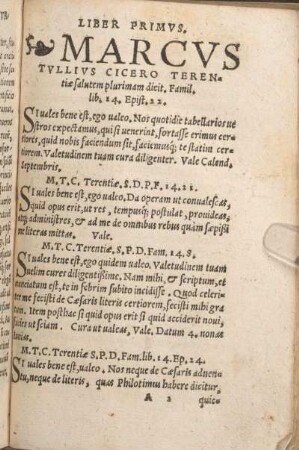 LIBER PRIMVS.
MARCVS
TVLLIVS CICERO TEREN-
tiæ salutem plurimam dicit. Famil.
lib. 14. Epist. 22.
SI uales bene est, ego ualeo. Nos quotidie tabellarios ue
stros expectamus, qui si uenerint, fortasse erimus cer
tiores, quid nobis faciendum sit, faciemusq; te statim cer-
tiorem. Valetudinem tuam cura diligenter. Vale Calend.
Septembris.
M. T. C. Terentiæ. S. D. P. F. 14. 21.
SI uales bene est, ego ualeo. Da operam ut conualescas,
quid opus erit, ut res, tempusq; postulat, prouideas,
atq; administres, & ad me de omnibus rebus quàm sæpissi
me literas mittas. Vale.
M. T. C. Terentiæ. S. P. D. Fam. 14. 8.
SI uales bene est, ego quidem ualeo. Valetudinem tuam
uelim cures diligentissime. Nam mihi, & scriptum, et
nunciatum est, te in febrim subito incidisse. Quod celeri-
ter me fecisti de Cæsaris literis certiorem, fecisti mihi gra
tum. Item posthac si quid opus erit si quid acciderit noui,
facies ut sciam. Cura ut ualeas, Vale. Datum 4. nonas
M. T. C. Terentiæ S. P. D. Fam. lib. 14. Ep. 24.
SI uales bene est, ualeo. Nos neque de Cæsaris aduen
tu, neque de literis, quas Philotimus habere dicitur,
A 2 quic-